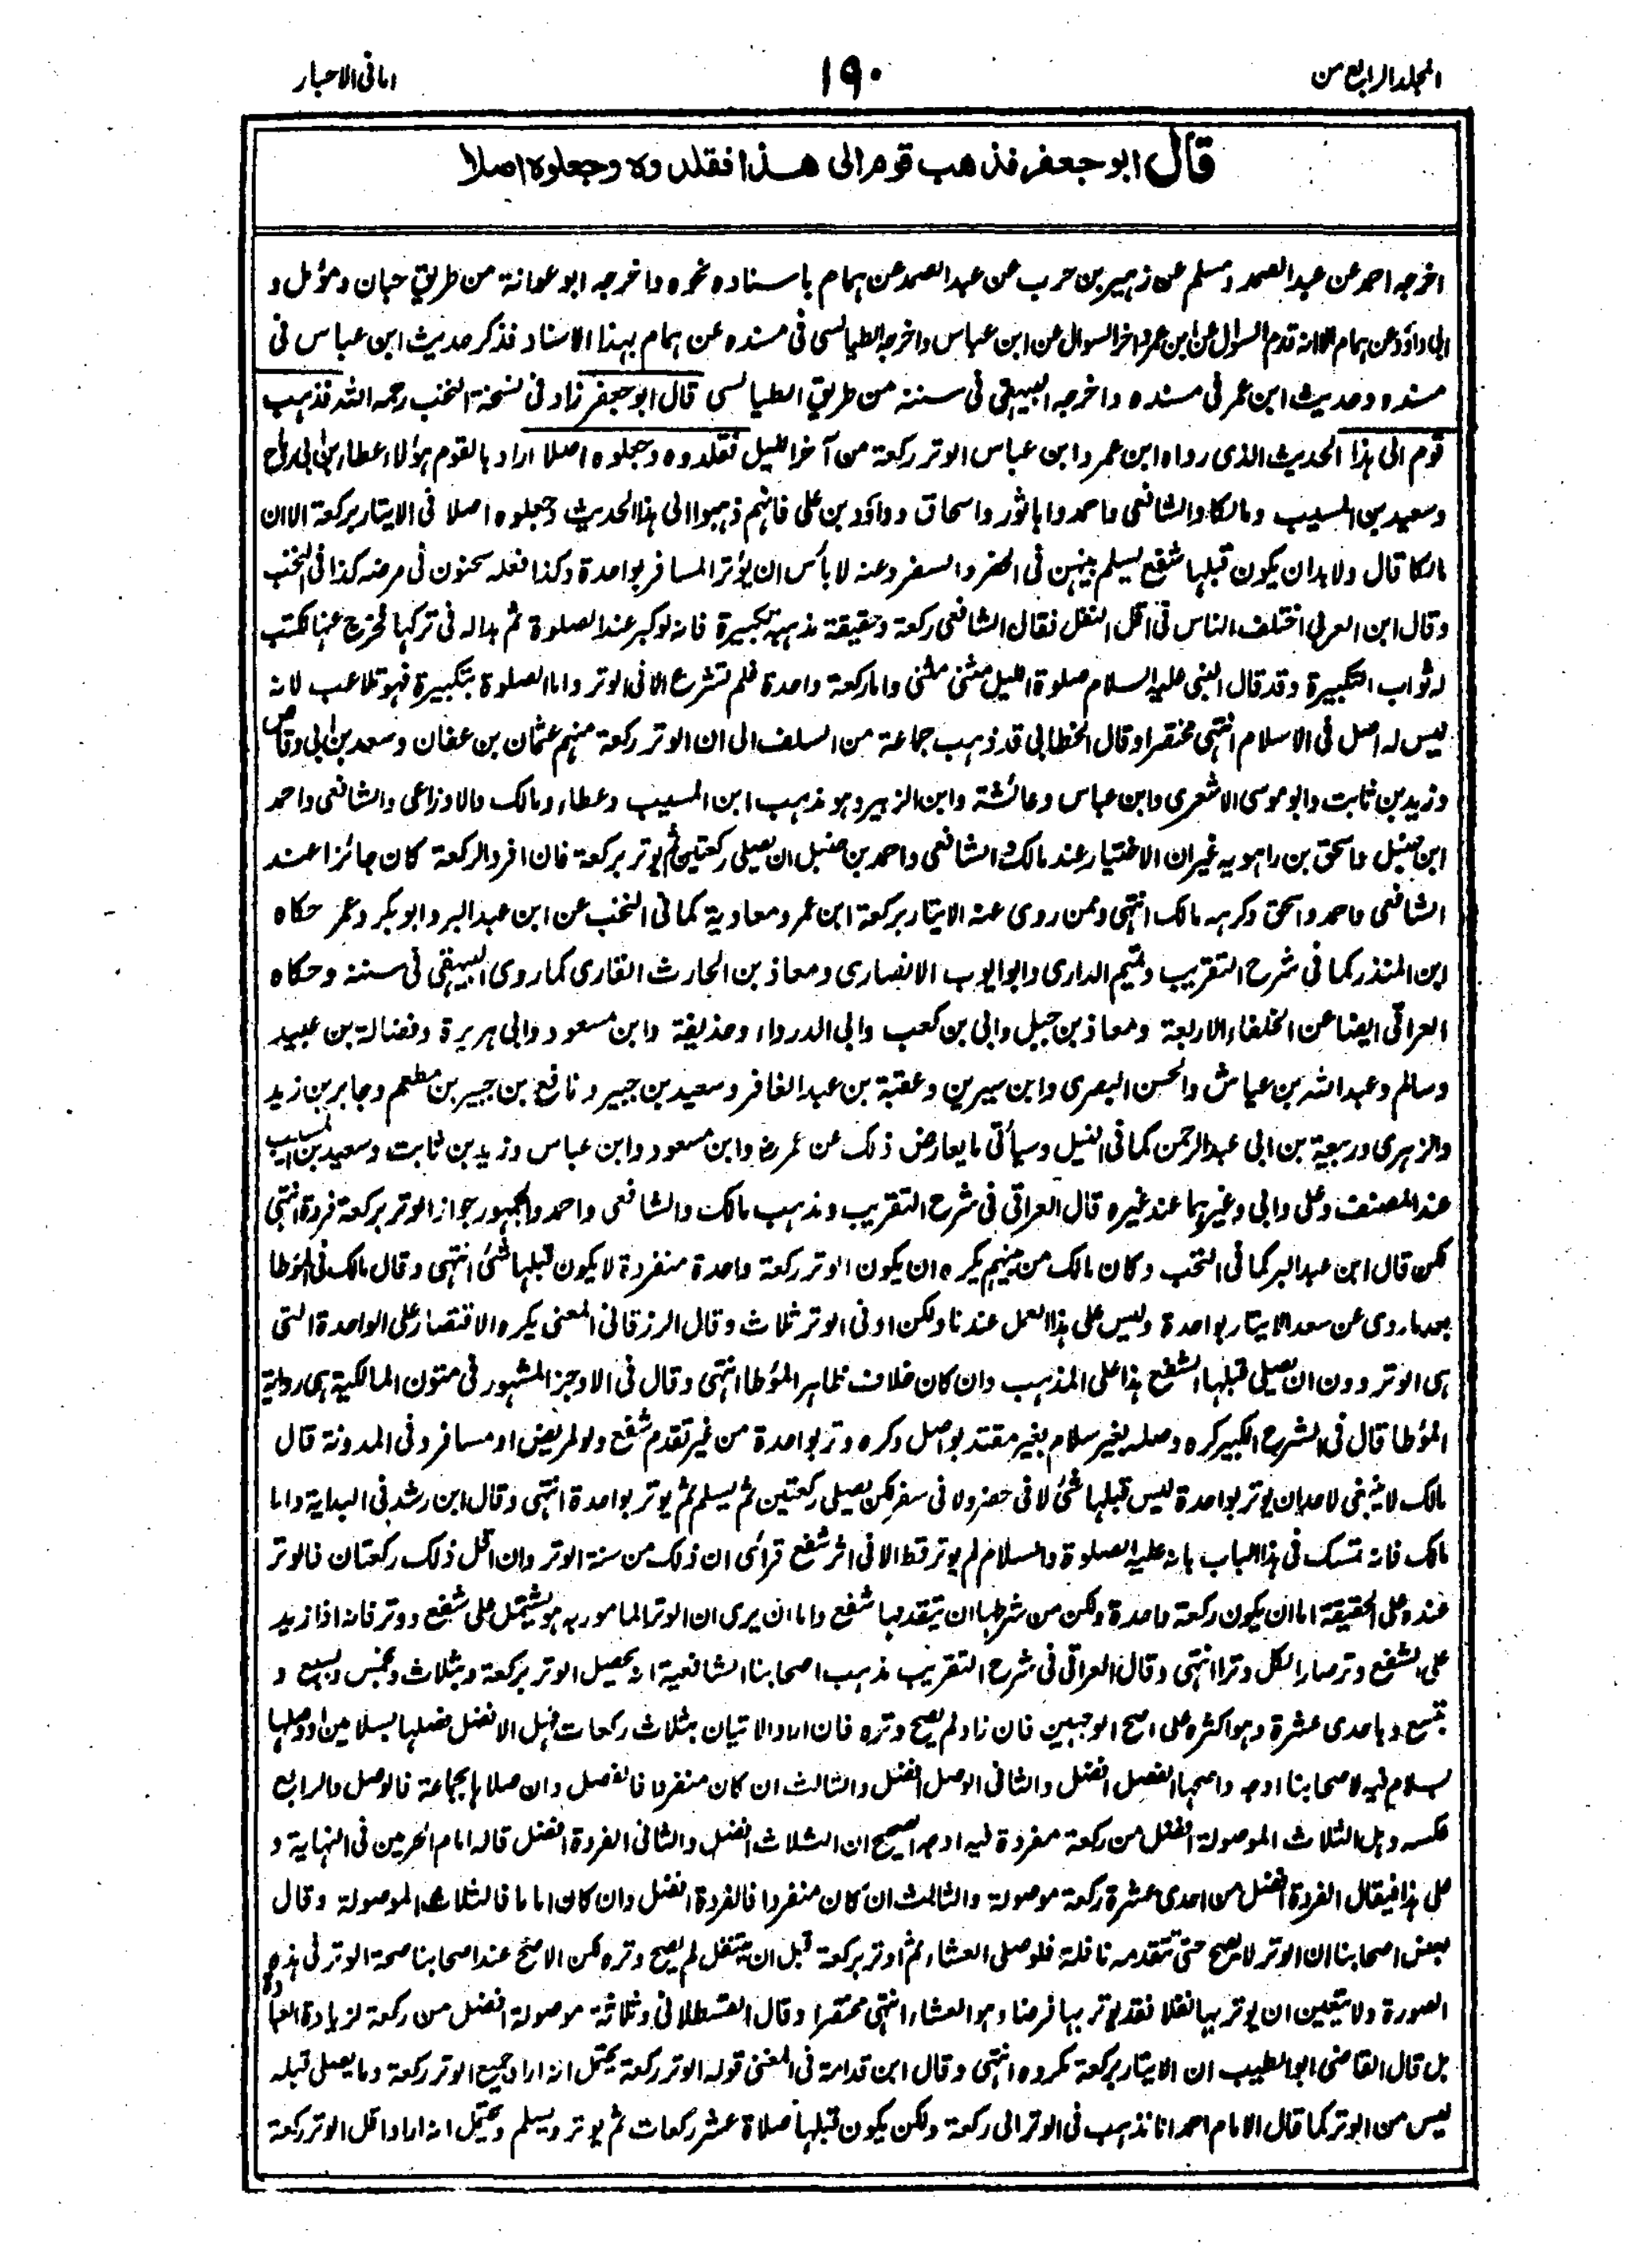 المجلد الرابع من
١٩٠
امانی الاحبار
قال ابو جعفر فذهب قوم الى هذا فقلدوه وجعلوه اصلا
اخرجہ احمد عن عبد الصمد ومسلم عن زہیر بن حرب عن عبد الصمد عن ہمام باسنادہ نحوہ واخرجہ ابو عوانۃ من طریق حبان ومؤمل و
ابی داؤد عن ہمام الا انہ قدم السوال عن ابن عمر واخر السوال عن ابن عباس واخرجہ الطیالسی فی مسندہ عن ہمام بہذا الاسناد فذکر حدیث ابن عباس فی
مسندہ وحدیث ابن عمر فی مسندہ واخرجہ البیہقی فی سننہ من طریق الطیالسی قال ابو جعفر زاد فی نسخۃ النخب رحمہ اللہ فذہب
قوم الی ہذا الحدیث الذی رواہ ابن عمر وابن عباس الوتر رکعۃ من آخر اللیل فقلدوہ وجعلوہ اصلا اراد بالقوم ہؤلاء عطاء بن ابی رباح
وسعید بن المسیب ومالکا والشافعی واحمد وابا ثور واسحاق وداؤد بن علی فانہم ذہبوا الی ہذا الحدیث وجعلوہ اصلا فی الایتار برکعۃ الا ان
مالکا قال ولا بد ان یکون قبلہا شفع لیسلم بینہن فی الحضر والسفر وعنہ لا بأس ان یؤتر المسافر بواحدۃ وکذا فعلہ سحنون فی مرضہ کذا فی النخب
وقال ابن العربی اختلف الناس فی اقل النفل فقال الشافعی رکعۃ وحقیقۃ مذہبہ تکبیرۃ فانہ لو کبر عند الصلوۃ ثم بدالہ فی ترکہا فخرج عنہا کتب
لہ ثواب التکبیرۃ وقد قال النبی علیہ السلام صلوۃ اللیل مثنی مثنی واما رکعۃ واحدۃ فلم تشرع الا فی الوتر واما الصلوۃ بتکبیرۃ فہو تلاعب لانہ
لیس لہ اصل فی الاسلام انتہی مختصرا وقال الخطابی قد ذہب جماعۃ من السلف الی ان الوتر رکعۃ منہم عثمان بن عفان وسعد بن ابی وقاص
وزید بن ثابت وابو موسی الاشعری وابن عباس وعائشۃ وابن الزبیر وہو مذہب ابن المسیب وعطاء ومالک والاوزاعی والشافعی واحمد
ابن حنبل واسحق بن راہویہ غیر ان الاختیار عند مالک والشافعی واحمد بن حنبل ان یصلی رکعتین ثم یوتر برکعۃ فان افرد الرکعۃ کان جائزا عند
الشافعی واحمد واسحق وکرہہ مالک انتہی وممن روی عنہ الایتار برکعۃ ابن عمر ومعاویۃ کما فی النخب عن ابن عبد البر وابو بکر وعمر حکاہ
ابن المنذر کما فی شرح التقریب وتمیم الداری وابو ایوب الانصاری ومعاذ بن الحارث القاری کما روی البیہقی فی سننہ وحکاہ
العراقی ایضا عن الخلفاء الاربعۃ ومعاذ بن جبل وابی بن کعب وابی الدرداء وحذیفۃ وابن مسعود وابی ہریرۃ وفضالۃ بن عبید
وسالم وعبد اللہ بن عیاش والحسن البصری وابن سیرین وعقبۃ بن عبد الغافر وسعید بن جبیر ونافع بن جبیر بن مطعم وجابر بن زید
والزہری وربیعۃ بن ابی عبد الرحمن کما فی النیل وسیأتی ما یعارض ذلک عن عمر رض وابن مسعود وابن عباس وزید بن ثابت وسعید بن المسیب
عند المصنف وعلی وابی وغیرہما عند غیرہ قال العراقی فی شرح التقریب ومذہب مالک والشافعی واحمد والجمہور جواز الوتر برکعۃ فردۃ انتہی
لکن قال ابن عبد البر کما فی النخب وکان مالک من بینہم یکرہ ان یکون الوتر رکعۃ واحدۃ منفردۃ لا یکون قبلہا شئ انتہی وقال مالک فی المؤطا
بعد ما روی عن سعد الایتار بواحدۃ ولیس علی ہذا العمل عندنا ولکن ادنی الوتر ثلاث وقال الزرقانی المعنی یکرہ الاقتصار علی الواحدۃ التی
ہی الوتر دون ان یصلی قبلہا الشفع ہذا علی المذہب وان کان خلاف ظاہر المؤطا انتہی وقال فی الاوجز المشہور فی متون المالکیۃ ہی روایۃ
المؤطا قال فی الشرح الکبیر کرہ وصلہ بغیر سلام بغیر مقتد بواصل وکرہ وتر بواحدۃ من غیر تقدم شفع ولو لمریض او مسافر وفی المدونۃ قال
مالک لا ینبغی لاحد ان یوتر بواحدۃ لیس قبلہا شئ لا فی حضر ولا فی سفر لکن یصلی رکعتین ثم یسلم ثم یوتر بواحدۃ انتہی وقال ابن رشد فی البدایۃ واما
مالک فانہ تمسک فی ہذا الباب بانہ علیہ الصلوۃ والسلام لم یوتر قط الا فی اثر شفع فرأی ان ذلک من سنۃ الوتر وان اقل ذلک رکعتان فالوتر
عندہ علی الحقیقۃ اما ان یکون رکعۃ واحدۃ ولکن من شرطہا ان یتقدمہا شفع واما ان یری ان الوتر المامور بہ ہو یشتمل علی شفع ووتر فانہ اذا زید
علی الشفع وتر صار الکل وترا انتہی وقال العراقی فی شرح التقریب مذہب اصحابنا الشافعیۃ انہ یحصیل الوتر برکعۃ وبثلاث وبخمس وبسبع و
بتسع وباحدی عشرۃ وہو اکثرہ علی اصح الوجہین فان زاد لم یصح وترہ فان اراد الاتیان بثلاث رکعات فہل الافضل فصلہا بسلامین او وصلہا
بسلام فیہ لاصحابنا اوجہ واصحہا الفصل افضل والثانی الوصل افضل والثالث ان کان منفردا فالفصل وان صلاہا بجماعۃ فالوصل والرابع
عکسہ وہل الثلاث الموصولۃ افضل من رکعۃ مفردۃ فیہ اوجہ الصحیح ان الثلاث افضل والثانی الفردۃ افضل قالہ امام الحرمین فی النہایۃ و
علی ہذا فیقال الفردۃ افضل من احدی عشرۃ رکعۃ موصولۃ والثالث ان کان منفردا فالفردۃ افضل وان کان اماما فالثلاث الموصولۃ وقال
بعض اصحابنا ان الوتر لا یصح حتی تتقدمہ نافلۃ فلو صلی العشاء ثم اوتر برکعۃ قبل ان یتنفل لم یصح وترہ لکن الاصح عند اصحابنا صحۃ الوتر فی ہذہ
الصورۃ ولا یتعین ان یوتر بہا نفلا فقد یوتر بہا فرضا وہو العشاء انتہی مختصرا وقال القسطلانی وثلاثۃ موصولۃ افضل من رکعۃ لزیادۃ العبادۃ
بل قال القاضی ابو الطیب ان الایتار برکعۃ مکروہ انتہی وقال ابن قدامۃ فی المغنی قولہ الوتر رکعۃ یحتمل انہ اراد جمیع الوتر رکعۃ وما یصلی قبلہ
لیس من الوتر کما قال الامام احمد انا نذہب فی الوتر الی رکعۃ ولکن یکون قبلہا صلاۃ عشر رکعات ثم یوتر ویسلم ویحتمل انہ اراد اقل الوتر رکعۃ